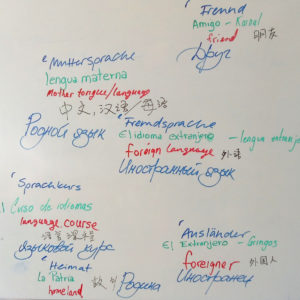 Freund
Amigo - Kornel
friend
朋友
Друг
Muttersprache
lengua materna
Mother tongue/language
中文, 汉语 / 母语
Родной язык
Fremdsprache
El idioma extranjero - lengua extranjera
foreign language 外语
Иностранный язык
Sprachkurs
Curso de idiomas
language course
语言课程
Языковой курс
Ausländer
El Extranjero - Gringos
foreigner 外国人
Иностранец
Heimat
La Patria
homeland
Родина